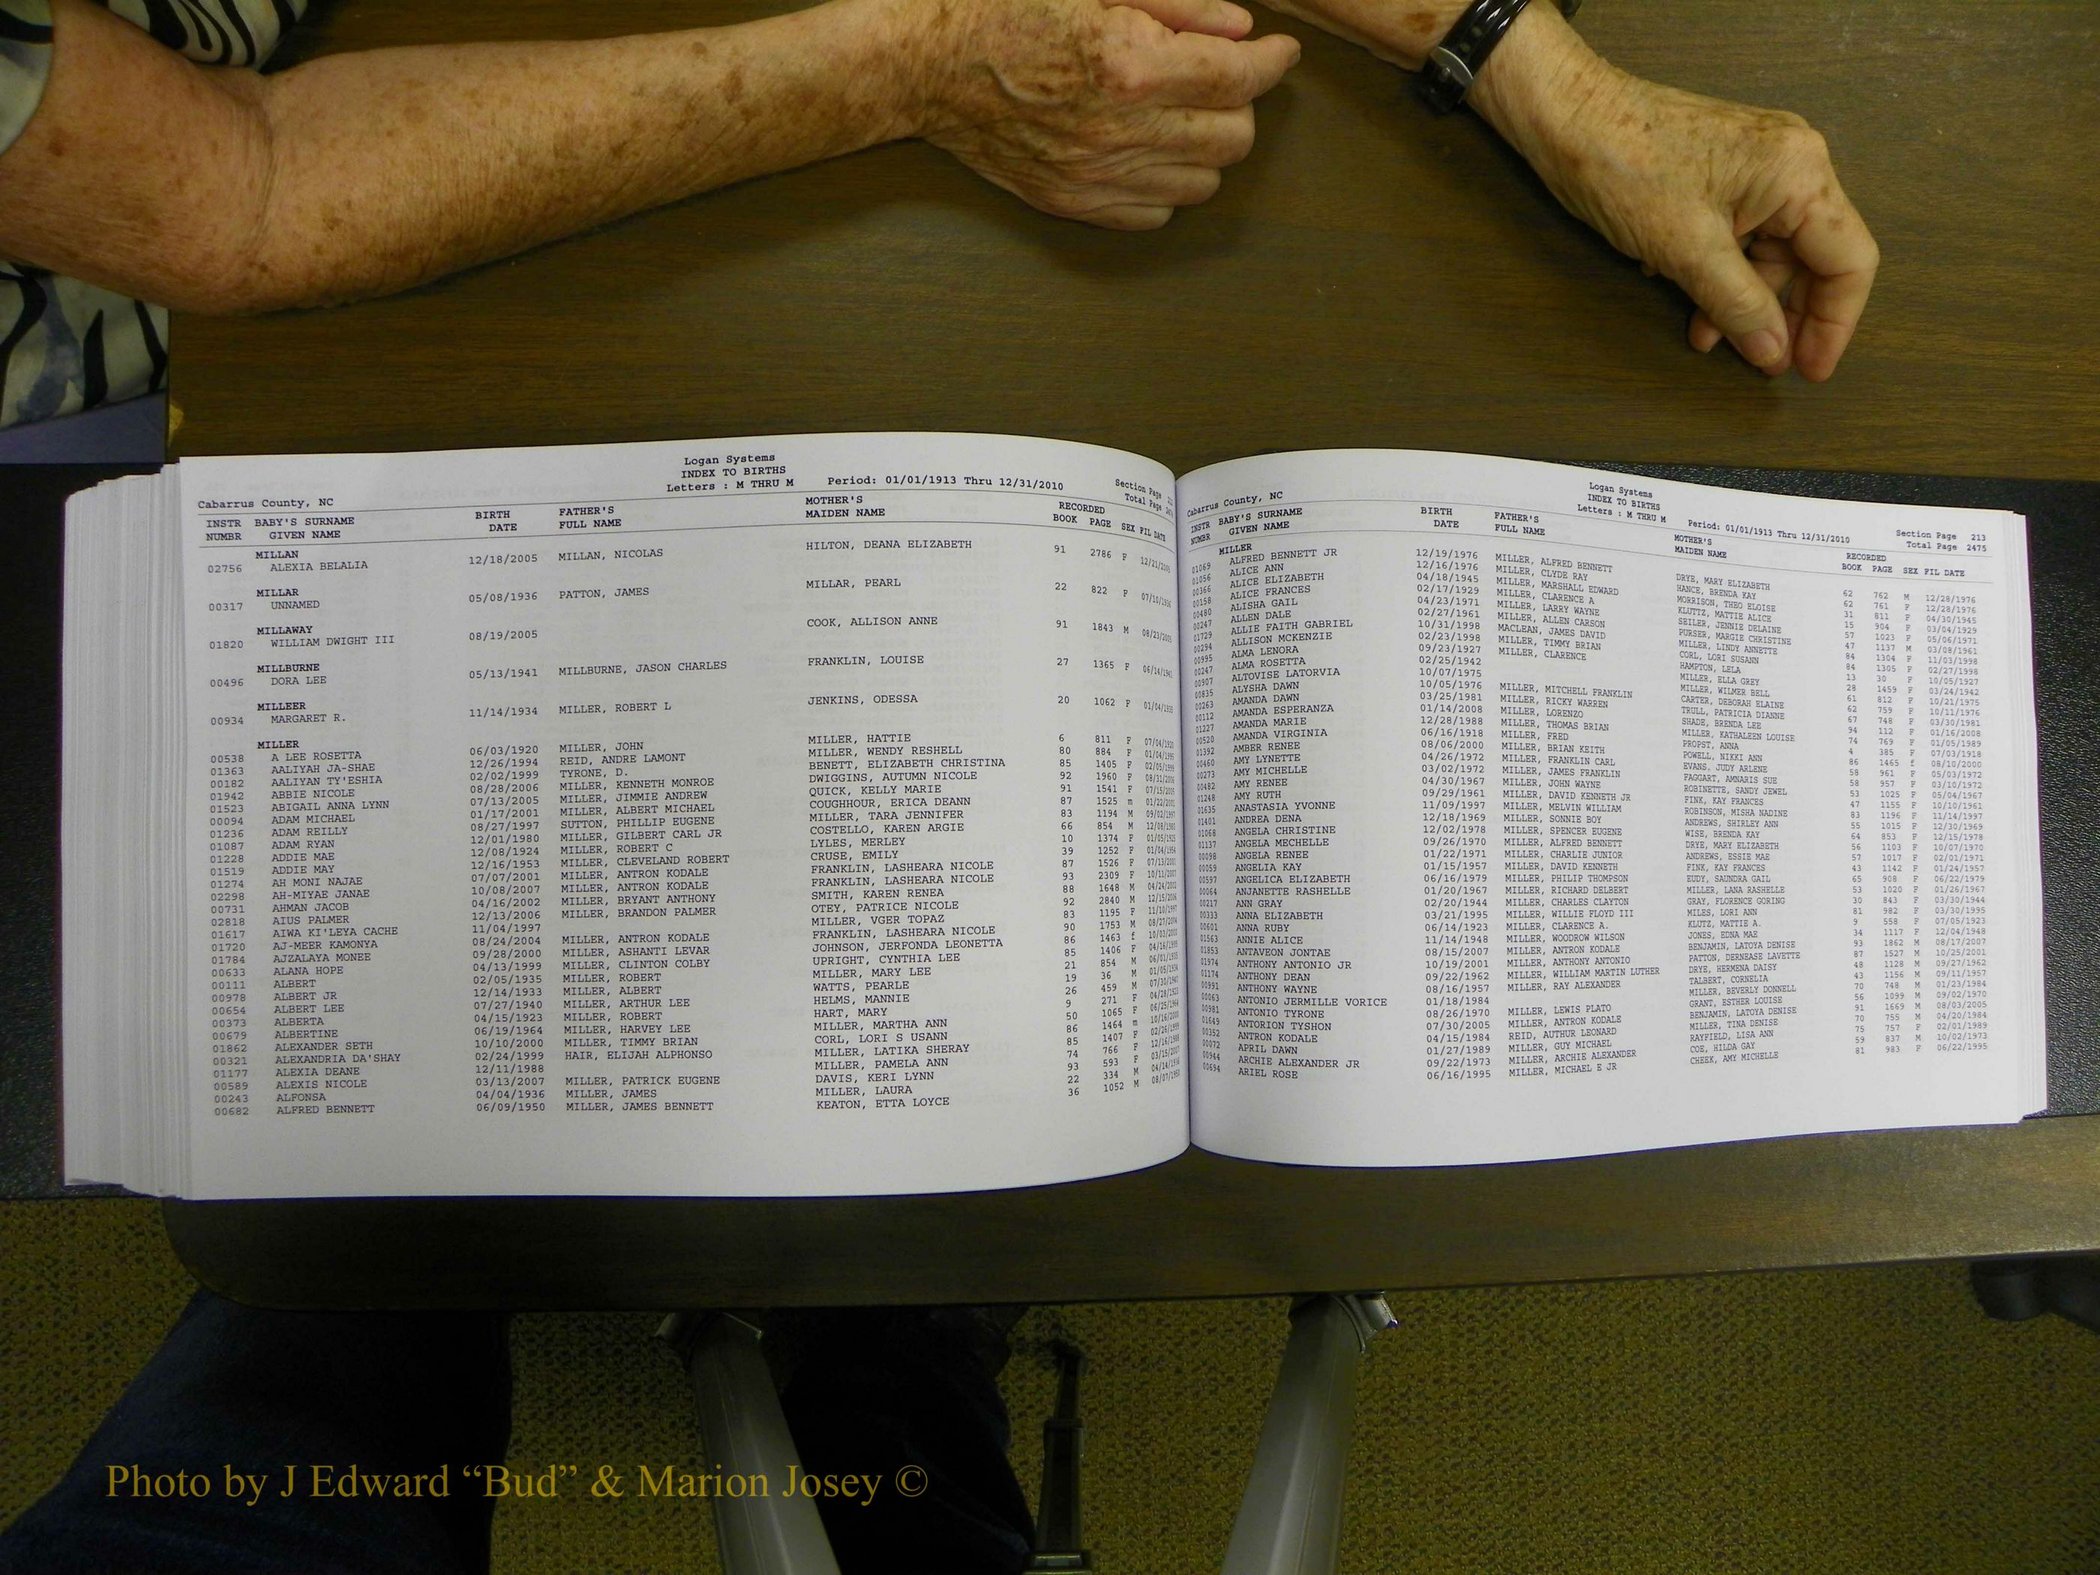 Logan Systems
INDEX TO BIRTHS
Cabarrus County, NC Letters : M THRU M Period: 01/01/1913 Thru 12/31/2010 Section Page
Total Page
INSTR BABY'S SURNAME BIRTH FATHER'S MOTHER'S RECORDED
NUMBR GIVEN NAME DATE FULL NAME MAIDEN NAME BOOK PAGE SEX FIL DATE
MILLAN
02756 ALEXIA BELALIA 12/18/2005 MILLAN, NICOLAS HILTON, DEANA ELIZABETH 91 2786 F 12/21/2005
MILLAR
00317 UNNAMED 05/08/1936 PATTON, JAMES MILLAR, PEARL 22 822 F 07/10/1936
MILLAWAY
01820 WILLIAM DWIGHT III 08/19/2005 COOK, ALLISON ANNE 91 1843 M 08/23/2005
MILLBURNE
00496 DORA LEE 05/13/1941 MILLBURNE, JASON CHARLES FRANKLIN, LOUISE 27 1365 F 06/14/1941
MILLEER
00934 MARGARET R. 11/14/1934 MILLER, ROBERT L JENKINS, ODESSA 20 1062 F 01/04/1935
MILLER
00538 A LEE ROSETTA 06/03/1920 MILLER, JOHN MILLER, HATTIE 6 811 F 07/04/1920
01363 AALIYAH JA-SHAE 12/26/1994 REID, ANDRE LAMONT MILLER, WENDY RESHELL 80 884 F 01/04/1995
00182 AALIYAN TY'ESHIA 02/02/1999 TYRONE, D. BENETT, ELIZABETH CHRISTINA 85 1405 F 02/05/1999
01942 ABBIE NICOLE 08/28/2006 MILLER, KENNETH MONROE DWIGGINS, AUTUMN NICOLE 92 1960 F 08/31/2006
01523 ABIGAIL ANNA LYNN 07/13/2005 MILLER, JIMMIE ANDREW QUICK, KELLY MARIE 91 1541 F 07/15/2005
00094 ADAM MICHAEL 01/17/2001 MILLER, ALBERT MICHAEL COUGHHOUR, ERICA DEANN 87 1525 m 01/22/2001
01236 ADAM REILLY 08/27/1997 SUTTON, PHILLIP EUGENE MILLER, TARA JENNIFER 83 1194 M 09/02/1997
01087 ADAM RYAN 12/01/1980 MILLER, GILBERT CARL JR COSTELLO, KAREN ARGIE 66 854 M 12/08/1980
01228 ADDIE MAE 12/08/1924 MILLER, ROBERT C LYLES, MERLEY 10 1374 F 01/05/1925
01519 ADDIE MAY 12/16/1953 MILLER, CLEVELAND ROBERT CRUSE, EMILY 39 1252 F 01/04/1954
01274 AH MONI NAJAE 07/07/2001 MILLER, ANTRON KODALE FRANKLIN, LASHEARA NICOLE 87 1526 F 07/13/2001
02298 AH-MIYAE JANAE 10/08/2007 MILLER, ANTRON KODALE FRANKLIN, LASHEARA NICOLE 93 2309 F 10/11/2007
00731 AHMAN JACOB 04/16/2002 MILLER, BRYANT ANTHONY SMITH, KAREN RENEA 88 1648 M 04/24/2002
02818 AIUS PALMER 12/13/2006 MILLER, BRANDON PALMER OTEY, PATRICE NICOLE 92 2840 M 12/15/2006
01617 AIWA KI'LEYA CACHE 11/04/1997 MILLER, VGER TOPAZ 83 1195 F 11/10/1997
01720 AJ-MEER KAMONYA 08/24/2004 MILLER, ANTRON KODALE FRANKLIN, LASHEARA NICOLE 90 1753 M 08/27/2004
01784 AJZALAYA MONEE 09/28/2000 MILLER, ASHANTI LEVAR JOHNSON, JERFONDA LEONETTA 86 1463 f 10/03/2000
00633 ALANA HOPE 04/13/1999 MILLER, CLINTON COLBY UPRIGHT, CYNTHIA LEE 85 1406 F 04/16/1999
00111 ALBERT 02/05/1935 MILLER, ROBERT MILLER, MARY LEE 21 854 M 06/01/1935
00978 ALBERT JR 12/14/1933 MILLER, ALBERT WATTS, PEARLE 19 36 M 01/05/1934
00654 ALBERT LEE 07/27/1940 MILLER, ARTHUR LEE HELMS, MANNIE 26 459 M 07/30/1940
00373 ALBERTA 04/15/1923 MILLER, ROBERT HART, MARY 9 271 F 04/28/1923
00679 ALBERTINE 06/19/1964 MILLER, HARVEY LEE MILLER, MARTHA ANN 50 1065 F 06/25/1964
01862 ALEXANDER SETH 10/10/2000 MILLER, TIMMY BRIAN CORL, LORI S USANN 86 1464 m 10/16/2000
00321 ALEXANDRIA DA'SHAY 02/24/1999 HAIR, ELIJAH ALPHONSO MILLER, LATIKA SHERAY 85 1407 F 02/26/1999
01177 ALEXIA DEANE 12/11/1988 MILLER, PAMELA ANN 74 766 F 12/16/1988
00589 ALEXIS NICOLE 03/13/2007 MILLER, PATRICK EUGENE DAVIS, KERI LYNN 93 593 F 03/16/2007
00243 ALFONSA 04/04/1936 MILLER, JAMES MILLER, LAURA 22 334 M 04/14/1936
00682 ALFRED BENNETT 06/09/1950 MILLER, JAMES BENNETT KEATON, ETTA LOYCE 36 1052 M 08/07/1950
Logan Systems
INDEX TO BIRTHS
Cabarrus County, NC Letters : M THRU M Period: 01/01/1913 Thru 12/31/2010 Section Page 213
Total Page 2475
INSTR BABY'S SURNAME BIRTH FATHER'S MOTHER'S RECORDED
NUMBR GIVEN NAME DATE FULL NAME MAIDEN NAME BOOK PAGE SEX FIL DATE
MILLER
01069 ALFRED BENNETT JR 12/19/1976 MILLER, ALFRED BENNETT DRYE, MARY ELIZABETH 62 762 M 12/28/1976
01056 ALICE ANN 12/16/1976 MILLER, CLYDE RAY HANCE, BRENDA KAY 62 761 F 12/28/1976
00366 ALICE ELIZABETH 04/18/1945 MILLER, MARSHALL EDWARD MORRISON, THEO ELOISE 31 811 F 04/30/1945
00158 ALICE FRANCES 02/17/1929 MILLER, CLARENCE A KLUTTZ, MATTIE ALICE 15 904 F 03/04/1929
00480 ALISHA GAIL 04/23/1971 MILLER, LARRY WAYNE SEILER, JENNIE DELAINE 57 1023 F 05/06/1971
00247 ALLEN DALE 02/27/1961 MILLER, ALLEN CARSON PURSER, MARGIE CHRISTINE 47 1137 M 03/08/1961
01729 ALLIE FAITH GABRIEL 10/31/1998 MACLEAN, JAMES DAVID MILLER, LINDY ANNETTE 84 1304 F 11/03/1998
00294 ALLISON MCKENZIE 02/23/1998 MILLER, TIMMY BRIAN CORL, LORI SUSANN 84 1305 F 02/27/1998
00995 ALMA LENORA 09/23/1927 MILLER, CLARENCE HAMPTON, LELA 13 30 F 10/05/1927
00247 ALMA ROSETTA 02/25/1942 MILLER, ELLA GREY 28 1459 F 03/24/1942
00907 ALTOVISE LATORVIA 10/07/1975 MILLER, WILMER BELL 61 812 F 10/21/1975
00835 ALYSHA DAWN 10/05/1976 MILLER, MITCHELL FRANKLIN CARTER, DEBORAH ELAINE 62 759 F 10/11/1976
00263 AMANDA DAWN 03/25/1981 MILLER, RICKY WARREN TRULL, PATRICIA DIANNE 67 748 F 03/30/1981
00112 AMANDA ESPERANZA 01/14/2008 MILLER, LORENZO SHADE, BRENDA LEE 94 112 F 01/16/2008
01227 AMANDA MARIE 12/28/1988 MILLER, THOMAS BRIAN MILLER, KATHALEEN LOUISE 74 769 F 01/05/1989
00520 AMANDA VIRGINIA 06/16/1918 MILLER, FRED PROPST, ANNA 4 385 F 07/03/1918
01392 AMBER RENEE 08/06/2000 MILLER, BRIAN KEITH POWELL, NIKKI ANN 86 1465 f 08/10/2000
00460 AMY LYNETTE 04/26/1972 MILLER, FRANKLIN CARL EVANS, JUDY ARLENE 58 961 F 05/03/1972
00273 AMY MICHELLE 03/02/1972 MILLER, JAMES FRANKLIN FAGGART, AMNARIS SUE 58 957 F 03/10/1972
00482 AMY RENEE 04/30/1967 MILLER, JOHN WAYNE ROBINETTE, SANDY JEWEL 53 1025 F 05/04/1967
01248 AMY RUTH 09/29/1961 MILLER, DAVID KENNETH JR FINK, KAY FRANCES 47 1155 F 10/10/1961
01635 ANASTASIA YVONNE 11/09/1997 MILLER, MELVIN WILLIAM ROBINSON, MISHA NADINE 83 1196 F 11/14/1997
01401 ANDREA DENA 12/18/1969 MILLER, SONNIE BOY ANDREWS, SHIRLEY ANN 55 1015 F 12/30/1969
01068 ANGELA CHRISTINE 12/02/1978 MILLER, SPENCER EUGENE WISE, BRENDA KAY 64 853 F 12/15/1978
01137 ANGELA MECHELLE 09/26/1970 MILLER, ALFRED BENNETT DRYE, MARY ELIZABETH 56 1103 F 10/07/1970
00098 ANGELA RENEE 01/22/1971 MILLER, CHARLIE JUNIOR ANDREWS, ESSIE MAE 57 1017 F 02/01/1971
00059 ANGELIA KAY 01/15/1957 MILLER, DAVID KENNETH FINK, KAY FRANCES 43 1142 F 01/24/1957
00597 ANGELICA ELIZABETH 06/16/1979 MILLER, PHILIP THOMPSON EUDY, SAUNDRA GAIL 65 908 F 06/22/1979
00064 ANJANETTE RASHELLE 01/20/1967 MILLER, RICHARD DELBERT MILLER, LANA RASHELLE 53 1020 F 01/26/1967
00217 ANN GRAY 02/20/1944 MILLER, CHARLES CLAYTON GRAY, FLORENCE GORING 30 843 F 03/30/1944
00333 ANNA ELIZABETH 03/21/1995 MILLER, WILLIE FLOYD III MILES, LORI ANN 81 982 F 03/30/1995
00601 ANNA RUBY 06/14/1923 MILLER, CLARENCE A. KLUTZ, MATTIE A. 9 558 F 07/05/1923
01563 ANNIE ALICE 11/14/1948 MILLER, WOODROW WILSON JONES, EDNA MAE 34 1117 F 12/04/1948
01853 ANTAVEON JONTAE 08/15/2007 MILLER, ANTRON KODALE BENJAMIN, LATOYA DENISE 93 1862 M 08/17/2007
01974 ANTHONY ANTONIO JR 10/19/2001 MILLER, ANTHONY ANTONIO PATTON, DERNEASE LAVETTE 87 1527 M 10/25/2001
01174 ANTHONY DEAN 09/22/1962 MILLER, WILLIAM MARTIN LUTHER DRYE, HERMENA DAISY 48 1128 M 09/27/1962
00991 ANTHONY WAYNE 08/16/1957 MILLER, RAY ALEXANDER TALBERT, CORNELIA 43 1156 M 09/11/1957
00063 ANTONIO JERMILLE VORICE 01/18/1984 MILLER, BEVERLY DONNELL 70 748 M 01/23/1984
00981 ANTONIO TYRONE 08/26/1970 MILLER, LEWIS PLATO GRANT, ESTHER LOUISE 56 1099 M 09/02/1970
01649 ANTORION TYSHON 07/30/2005 MILLER, ANTRON KODALE BENJAMIN, LATOYA DENISE 91 1669 M 08/03/2005
00352 ANTRON KODALE 04/15/1984 REID, AUTHUR LEONARD MILLER, TINA DENISE 70 755 M 04/20/1984
00072 APRIL DAWN 01/27/1989 MILLER, GUY MICHAEL RAYFIELD, LISA ANN 75 757 F 02/01/1989
00944 ARCHIE ALEXANDER JR 09/22/1973 MILLER, ARCHIE ALEXANDER COE, HILDA GAY 59 837 M 10/02/1973
00694 ARIEL ROSE 06/16/1995 MILLER, MICHAEL E JR CHEEK, AMY MICHELLE 81 983 F 06/22/1995
Photo by J Edward “Bud” & Marion Josey ©